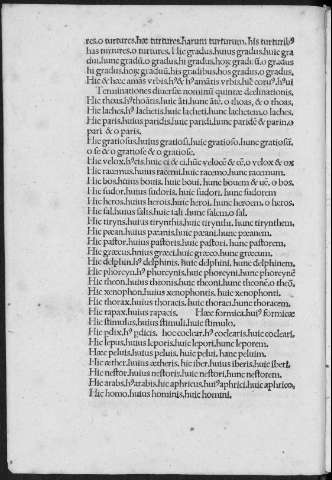 res.o turtures.hæ turtures.harum turturum. his turturibꝰ
has turtures.o turtures. Hic gradus.huius gradus.huic gra
dui.hunc gradū.o gradus.hi gradus.hoꝝ gradūū.o gradus
hi gradus.hoꝝ graduū.his gradibus.hos gradus.o gradus.
Hic & hæc amās vrbis.hꝰ & hꝰ amātis vrbis.
Terminationes diuersæ nominū quintæ declinationis.
Hic thoas.hꝰ thoātis.huic āti.hunc ātē. o thoas, & o thoas,
Hic laches.hꝰ lachetis.huic lacheti.hunc lachetem.o laches.
Hic paris.huius paridis.huic paridi.hunc paridē & parin.o
pari & o paris.
Hic gratiosus.huius gratiosi.huic gratioso.hunc gratiosū.
o se & o gratiose & o gratiose.
Hic velox.hꝰ cis.huic ci & ci.hūc velocē & cē.o velox & ox
Hic racemus.huius racemi.huic racemo.hunc racemum.
Hic bos.huius bouis. huic boui. hunc bouem & uē. o bos.
Hic sudor.huius sudoris. huic sudori. hunc sudorem
Hic heros.huius herois.huic heroi. hunc heroem. o heros.
Hic sal.huius salis.huic sali.hunc salem.o sal.
Hic tiryns.huius tirynthis.huic tirynthi. hunc tirynthem.
Hic pæan.huius pæanis.huic pæani.hunc pæanem.
Hic pastor.huius pastoris.huic pastori. hunc pastorem.
Hic græcus.huius græci.huic græco.hunc græcum.
Hic delphin.hꝰ delphinis. huic delphini. hunc delphinem.
Hic phorcyn.hꝰ phorcynis.huic phorcyni.hunc phorcynē
Hic theon.huius theonis.huic theoni.hunc theonē.o theō.
Hic xenophon.huius xenophontis. huic xenophonti.
Hic thorax.huius thoracis.huic thoraci.hunc thoracem.
Hic rapax.huius rapacis. Hæc formica.huiꝰ formicæ
Hic stimulus.huius stimuli.huic stimulo.
Hic pdix.hꝰ pdicis. hoc coclear.hꝰ coclearis.huic cocleari.
Hic lepus.huius leporis.huic lepori.hunc leporem.
Hæc peluis.huius peluis.huic pelui. hanc peluim.
Hic æther.huius ætheris. hic iber.huius iberis.huic iberi.
Hic nestor.huius nestoris.huic nestori.hunc nestorem.
Hic arabs.hꝰ arabis.hic aphricus.huiꝰ aphrici.huic aphrico.
Hic homo.huius hominis.huic homini.